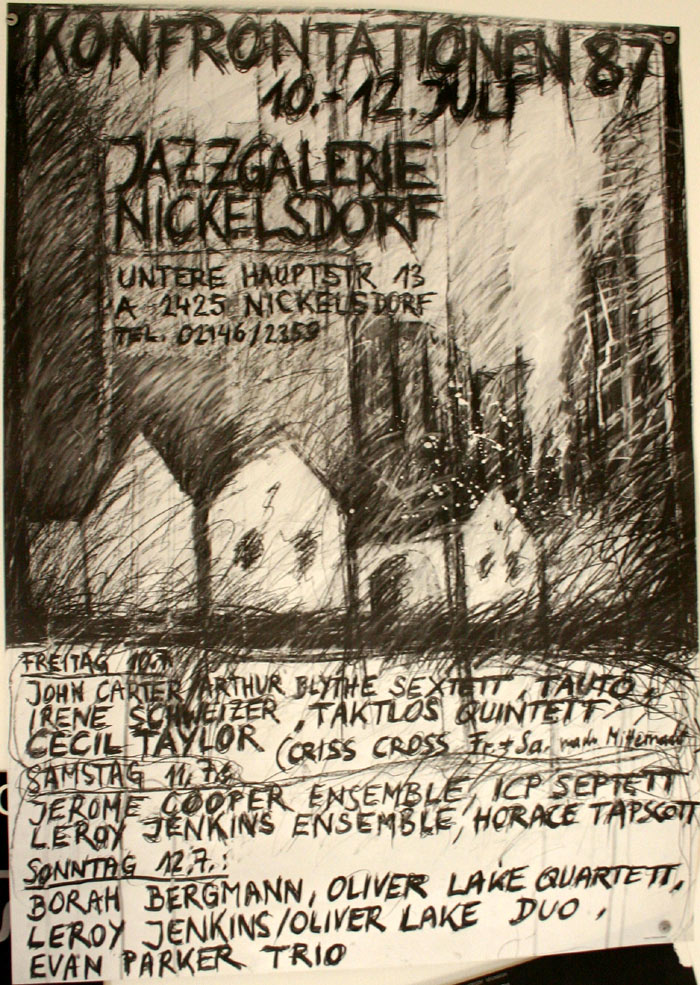 KONFRONTATIONEN 87
10.-12. JULI
JAZZGALERIE
NICKELSDORF
UNTERE HAUPTSTR 13
A 2425 NICKELSDORF
TEL. 02146/2359
FREITAG 10.7.
JOHN CARTER/ARTHUR BLYTHE SEXTETT, TAUTO,
IRENE SCHWEIZER, TAKTLOS QUINTETT
CECIL TAYLOR (CRISS CROSS Fr. + Sa. nach Mitternacht
SAMSTAG 11.7.:
JEROME COOPER ENSEMBLE, ICP SEPTETT
LEROY JENKINS ENSEMBLE, HORACE TAPSCOTT
SONNTAG 12.7.:
BORAH BERGMANN, OLIVER LAKE QUARTETT,
LEROY JENKINS/OLIVER LAKE DUO,
EVAN PARKER TRIO